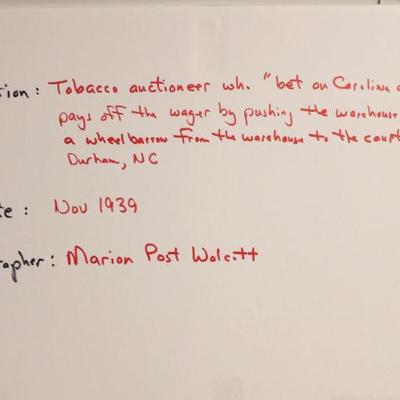 tion: Tobacco auctioneer wh. "bet on Carolina
pays off the wager by pushing the warehouse
a wheelbarrow from the warehouse to the court
Durham, NC
te: Nov 1939
rapher: Marion Post Wolcott